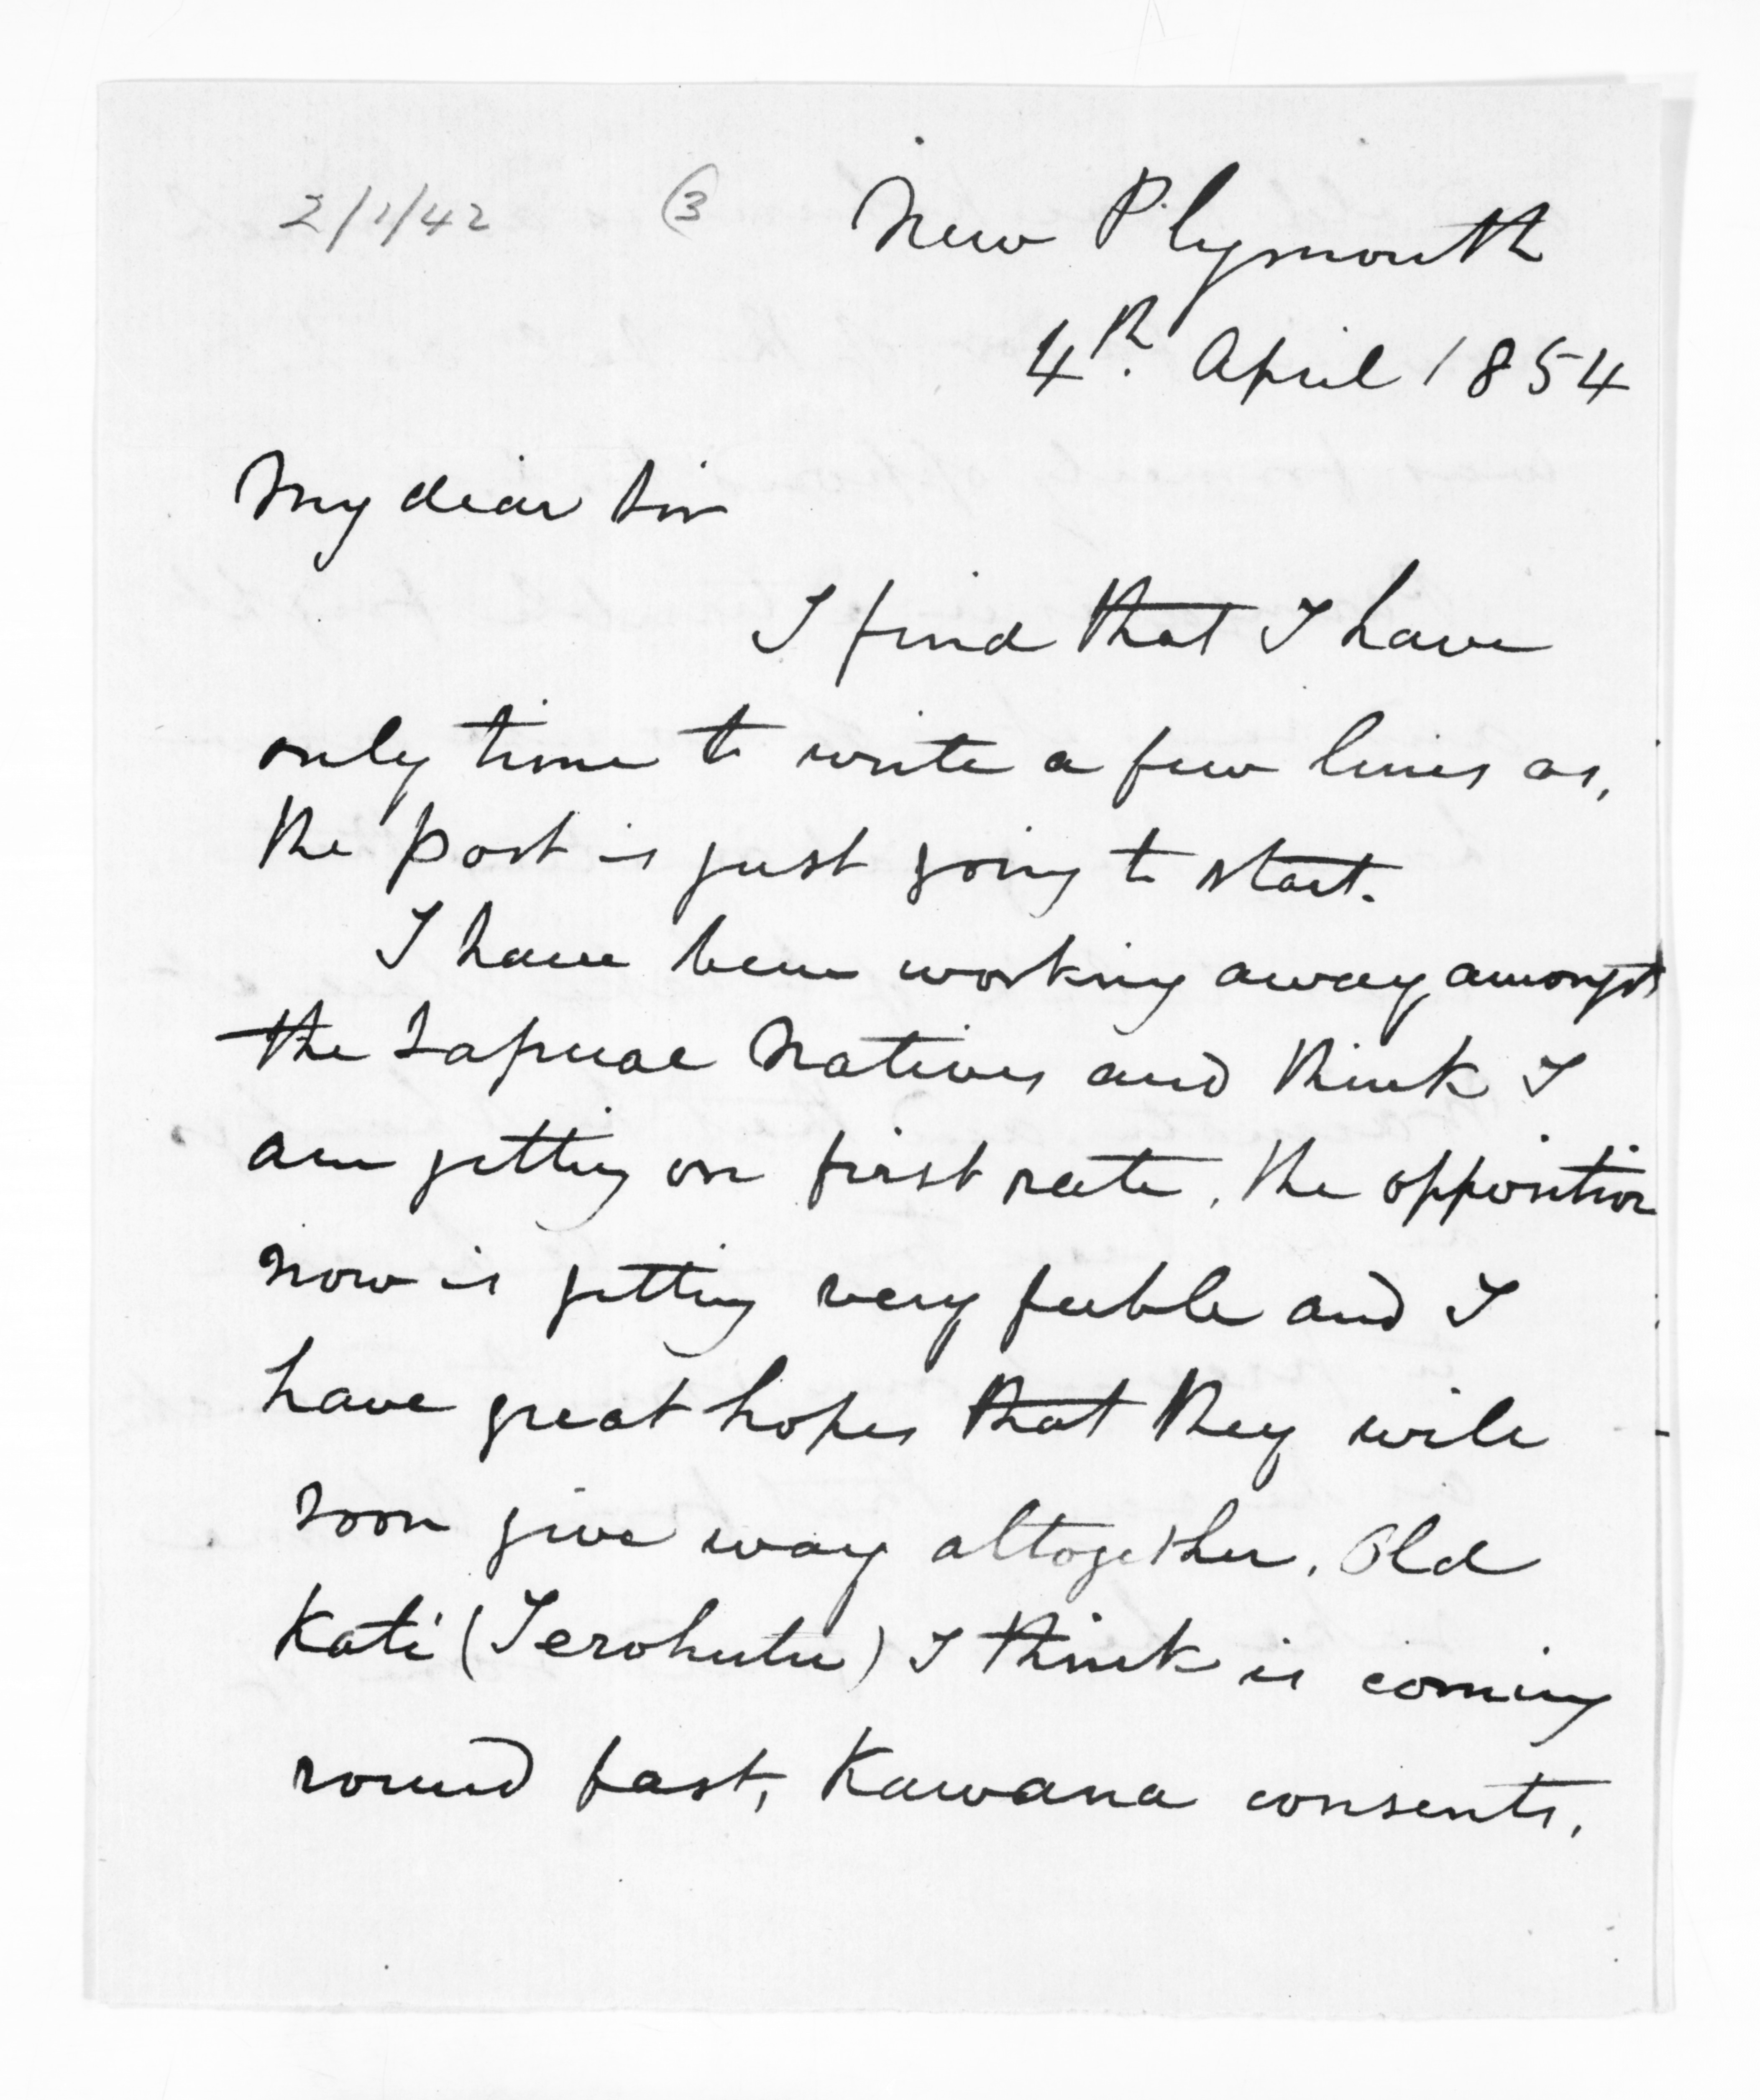 2/1/42 3 New Plymouth
4th. April 1854
My dear Sir
I find that I have
only time to write a few lines as,
the post is just going to start.
I have been working away amongst
the Tapuae Natives and think I
am getting on first rate, the opposition
now is getting very feeble and I
have great hopes that they will
soon give way altogether. Old
Kati (Terohutu) I think is coming
round fast, Kawana consents,